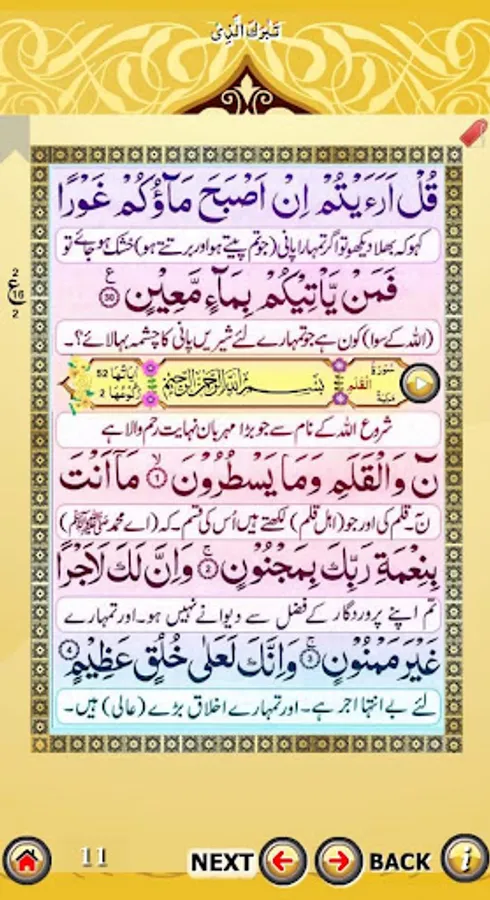 تَبٰرَكَ الَّذِىْ
قُلْ اَرَءَيْتُمْ اِنْ اَصْبَحَ مَآؤُكُمْ غَوْرًا
کہو کہ بھلا دیکھو تو اگر تمہارا پانی (جو تم پیتے ہو اور برتتے ہو) خشک ہو جائے تو
فَمَنْ يَّاْتِيْكُمْ بِمَآءٍ مَّعِيْنٍ ع ۝30
(اللہ کے سوا) کون ہے جو تمہارے لئے شیریں پانی کا چشمہ بہا لائے؟۔
2
ع
16
2
سُوْرَةُ الْقَلَمِ مَكِّيَّة
بِسْمِ اللهِ الرَّحْمٰنِ الرَّحِيْمِ
اٰيَاتُهَا 52
رُكُوْعُهَا 2
شروع اللہ کے نام سے جو بڑا مہربان نہایت رحم والا ہے
نٓ وَالْقَلَمِ وَمَا يَسْطُرُوْنَ ۙ‏۝1 مَآ اَنْتَ
نٓ۔ قلم کی اور جو (اہل قلم) لکھتے ہیں اُس کی قسم۔ کہ (اے محمد ﷺ)
بِنِعْمَةِ رَبِّكَ بِمَجْنُوْنٍ ۚ‏۝2 وَاِنَّ لَكَ لَاَجْرًا
تم اپنے پروردگار کے فضل سے دیوانے نہیں ہو۔ اور تمہارے
غَيْرَ مَمْنُوْنٍ ۚ‏۝3 وَاِنَّكَ لَعَلٰى خُلُقٍ عَظِيْمٍ ۝4
لئے بے انتہا اجر ہے۔ اور تمہارے اخلاق بڑے (عالی) ہیں۔
11 NEXT BACK i